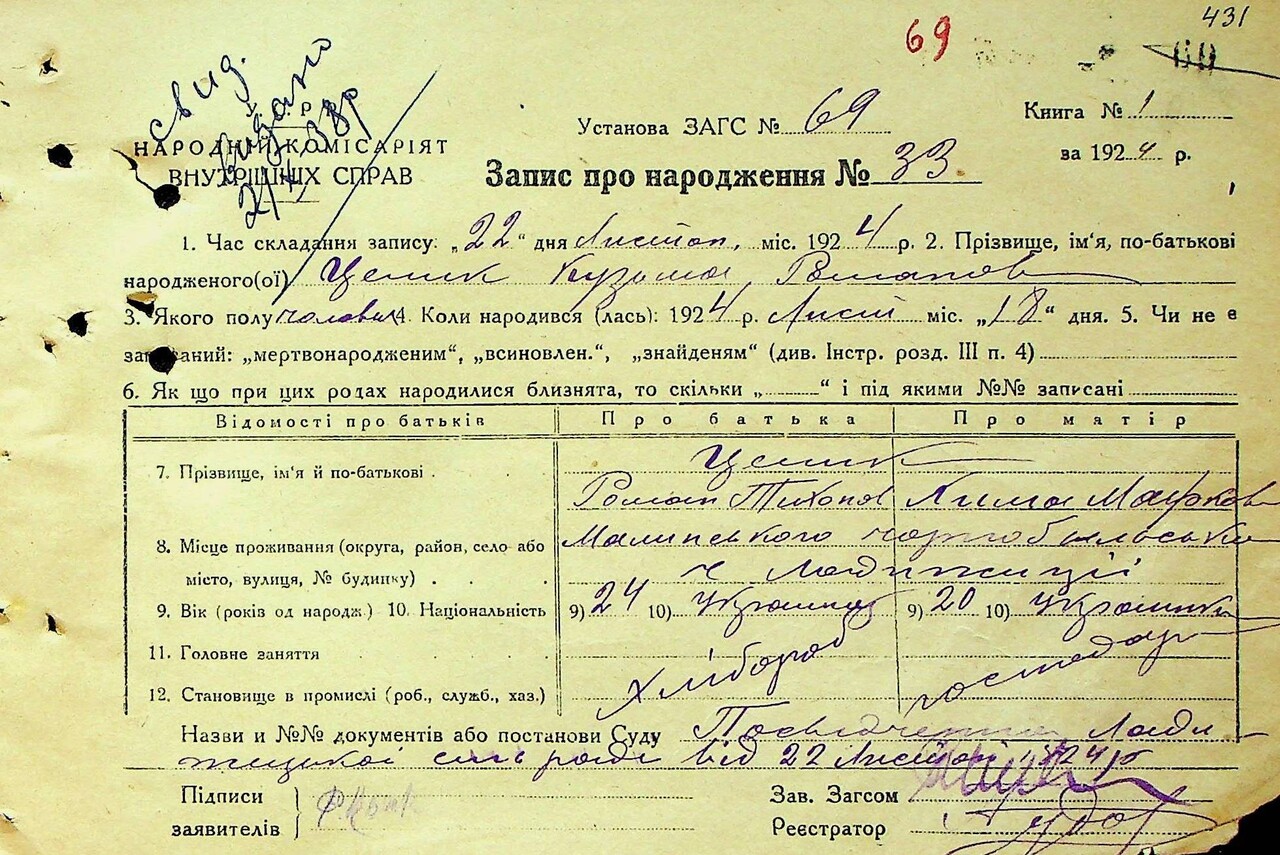 431
69
свид.
видано
НАРОДНІЙ КОМІСАРІЯТ
ВНУТРІШНІХ СПРАВ
Установа ЗАГС № 69
Книга № 1
за 1924 р.
Запис про народження № 33
1. Час складання запису: „22“ дня Листоп. міс. 1924 р. 2. Прізвище, ім'я, по-батькові
народженого(ої) Кузьма Романов
3. Якого полу чоловіч 4. Коли народився (лась): 1924 р. Лист міс. „18“ дня. 5. Чи не є
записаний: „мертвонародженим“, „всиновлен.“, „знайденям“ (див. Інстр. розд. III п. 4)
6. Як що при цих родах народилися близнята, то скільки „ “ і під якими №№ записані
Відомості про батьків Про батька Про матір
7. Прізвище, ім'я й по-батькові
Роман Тихонов Марков
8. Місце проживання (округа, район, село або Малинського чорнобильськ
місто, вулиця, № будинку) с Ладижиці
9. Вік (років од народж.) 10. Національність 9) 24 10) Україинец 9) 20 10) Україинка
11. Головне заняття
12. Становище в промислі (роб., служб., хаз.) хлібороб господар
Назви и №№ документів або постанови Суду Посвідчення Лади-
жицької сель ради від 22 Листоп 1924 р
Підписи
заявителів
Зав. Загсом
Реєстратор